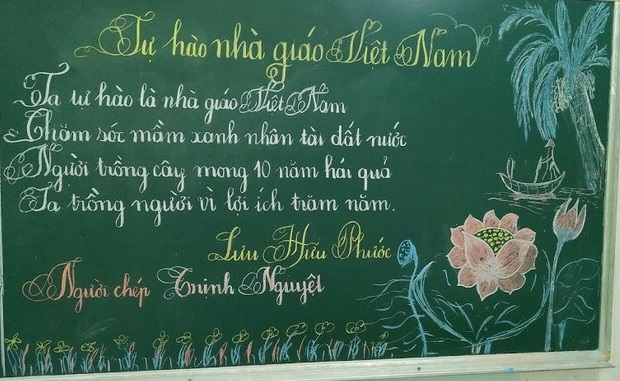 Tự hào nhà giáo Việt Nam
Ta tự hào là nhà giáo Việt Nam
Chăm sóc mầm xanh nhân tài đất nước
Người trồng cây mong 10 năm hái quả
Ta trồng người vì lợi ích trăm năm.
Lưu Hữu Phước
Người chép Trịnh Nguyệt